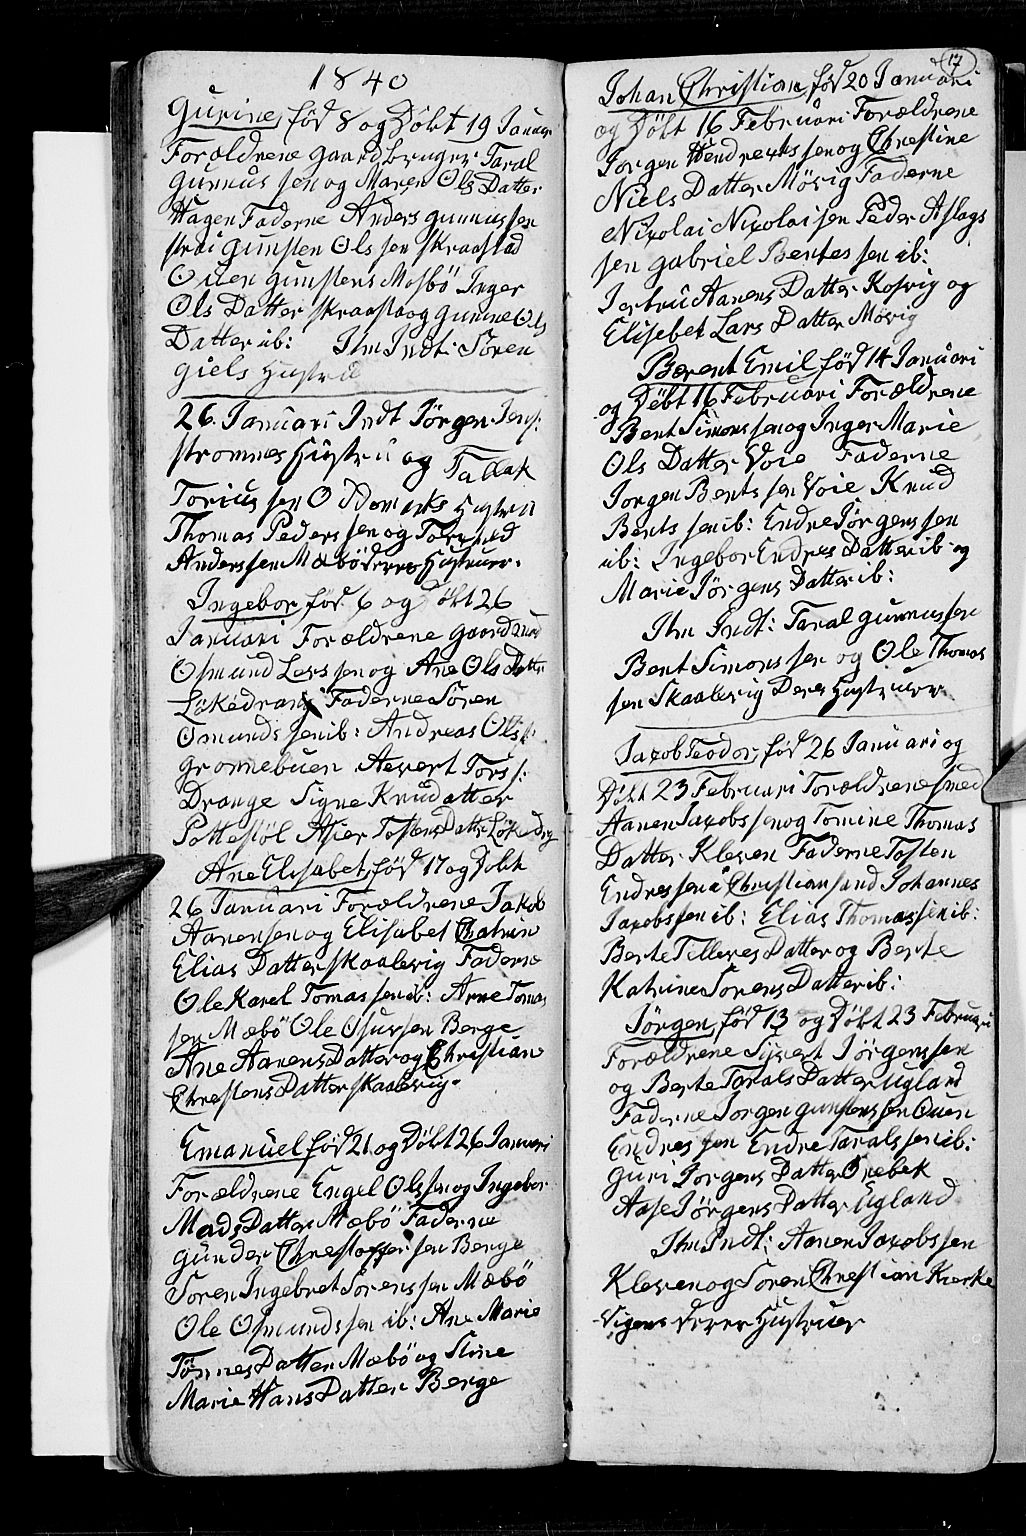 1840
Gurine, fød 8 og Døbt 19 Januar
Forældrene gaardbruger Taral
Gunnus sen og Maren Ols Datter
Hagen Faderne Anders gunnussen
strai Gunsten Ols sen skraastad
Ouen gunstens Mosbö Inger
Ols Datter skraastaog Gunne Ols
Datter ib: Itm Indt: Sören
giels Hustrü
26. Januari Indt Jörgen Jens:
stromnes Hüstrü og Tallak
Torius sen Oddernes Hustru
Thomas Peders sen og Torkild
Anders sen Mæbö Deres Hustruer.
Ingebor, fød 6 og Døbt 26
Januari Forældrene Gaardmand
Osmund Lars sen og Ane Ols Datter
Lökedrang Faderne Sören
Osmunds sen ib: Andreas Ols s:
Gronnebuen Aevert Tors s:
Drange Signe Knudatter
Pottestöl Asier Tostens Datt: Lökedrg
Ane Elisabet, fød 17 og Døbt
26 Januari Forældrene Jakob
Aanensen og Elisabet Chatrin
Elias Datter skaalevig Faderne
Ole Karel Tomas sen ib: Arne Tomas
sen Mæbö Ole Osuvsen Berge
Ane Aanens Datter og Christian
Chrestens Datter skaalevig.
Emanüel fød 21 og Døbt 26 Januari
Forældrene Engel Olssen og Ingebor
Mads Datter Mæbö Faderne
Günder Chrestoffersen Berge
Sören Ingebret Sörens sen Mæbö
Ole Osmunds sen ib: Ane Marie
Tönnes Datter Mæbö og Stine
Marie Hans Datter Berge
17
Johan Christian, fød 20 Januari
og Døbt 16 Februari Forældrene
Jorgen Hendreks sen og Chrestine
Niels Datter Mövig Faderne
Nikolai Nikolaisen Peder Aslags
sen gabriel Bentes sen ib:
Jertrü Aanens Datter Kosvig og
Elisebet Lars Datter Mövig
Berent Emil, fød 14 Januari
og Døbt 16 Februari Forældrene
Bent Simons sen og Inger Marie
Ols Datter Voie Faderne
Jorgen Bents sen Voie Knud
Bents sen ib: Endre Jörgens sen
ib: Ingebor Endres Datter ib og
Marie Jörgens Datter ib:
Itm Indt: Taral gunnussen
Bent Simons sen og Ole Thomas
sen Skaalevig Deres Hustruer
Jakob Teodor, fød 26 Januari og
Døbt 23 Februari Forældrene smed
Aanen Jakobs sen og Tomine Thomas
Datter Kleven Faderne Tosten
Endressen i Christiansand Johannes
Jakobs sen ib: Elias Thomassen ib:
Berte Tilleves Datter og Berte
Katrine Sorens Datter ib:
Jörgen, fød 13 og Døbt 23 Februari
Forældrene Sivert Jörgens sen
og Berte Tarals Datter Ugland
Faderne Jorgen gunstens sen Ouen
Endres sen Endre Tarals sen ib:
Guri Jorgens Datter Drebek
Aase Jörgens Datter Ugland
Itm Indt: Aanen Jakobs sen
Kleven og Soren Chrestian Kierke
Vigens Deres Hustruer